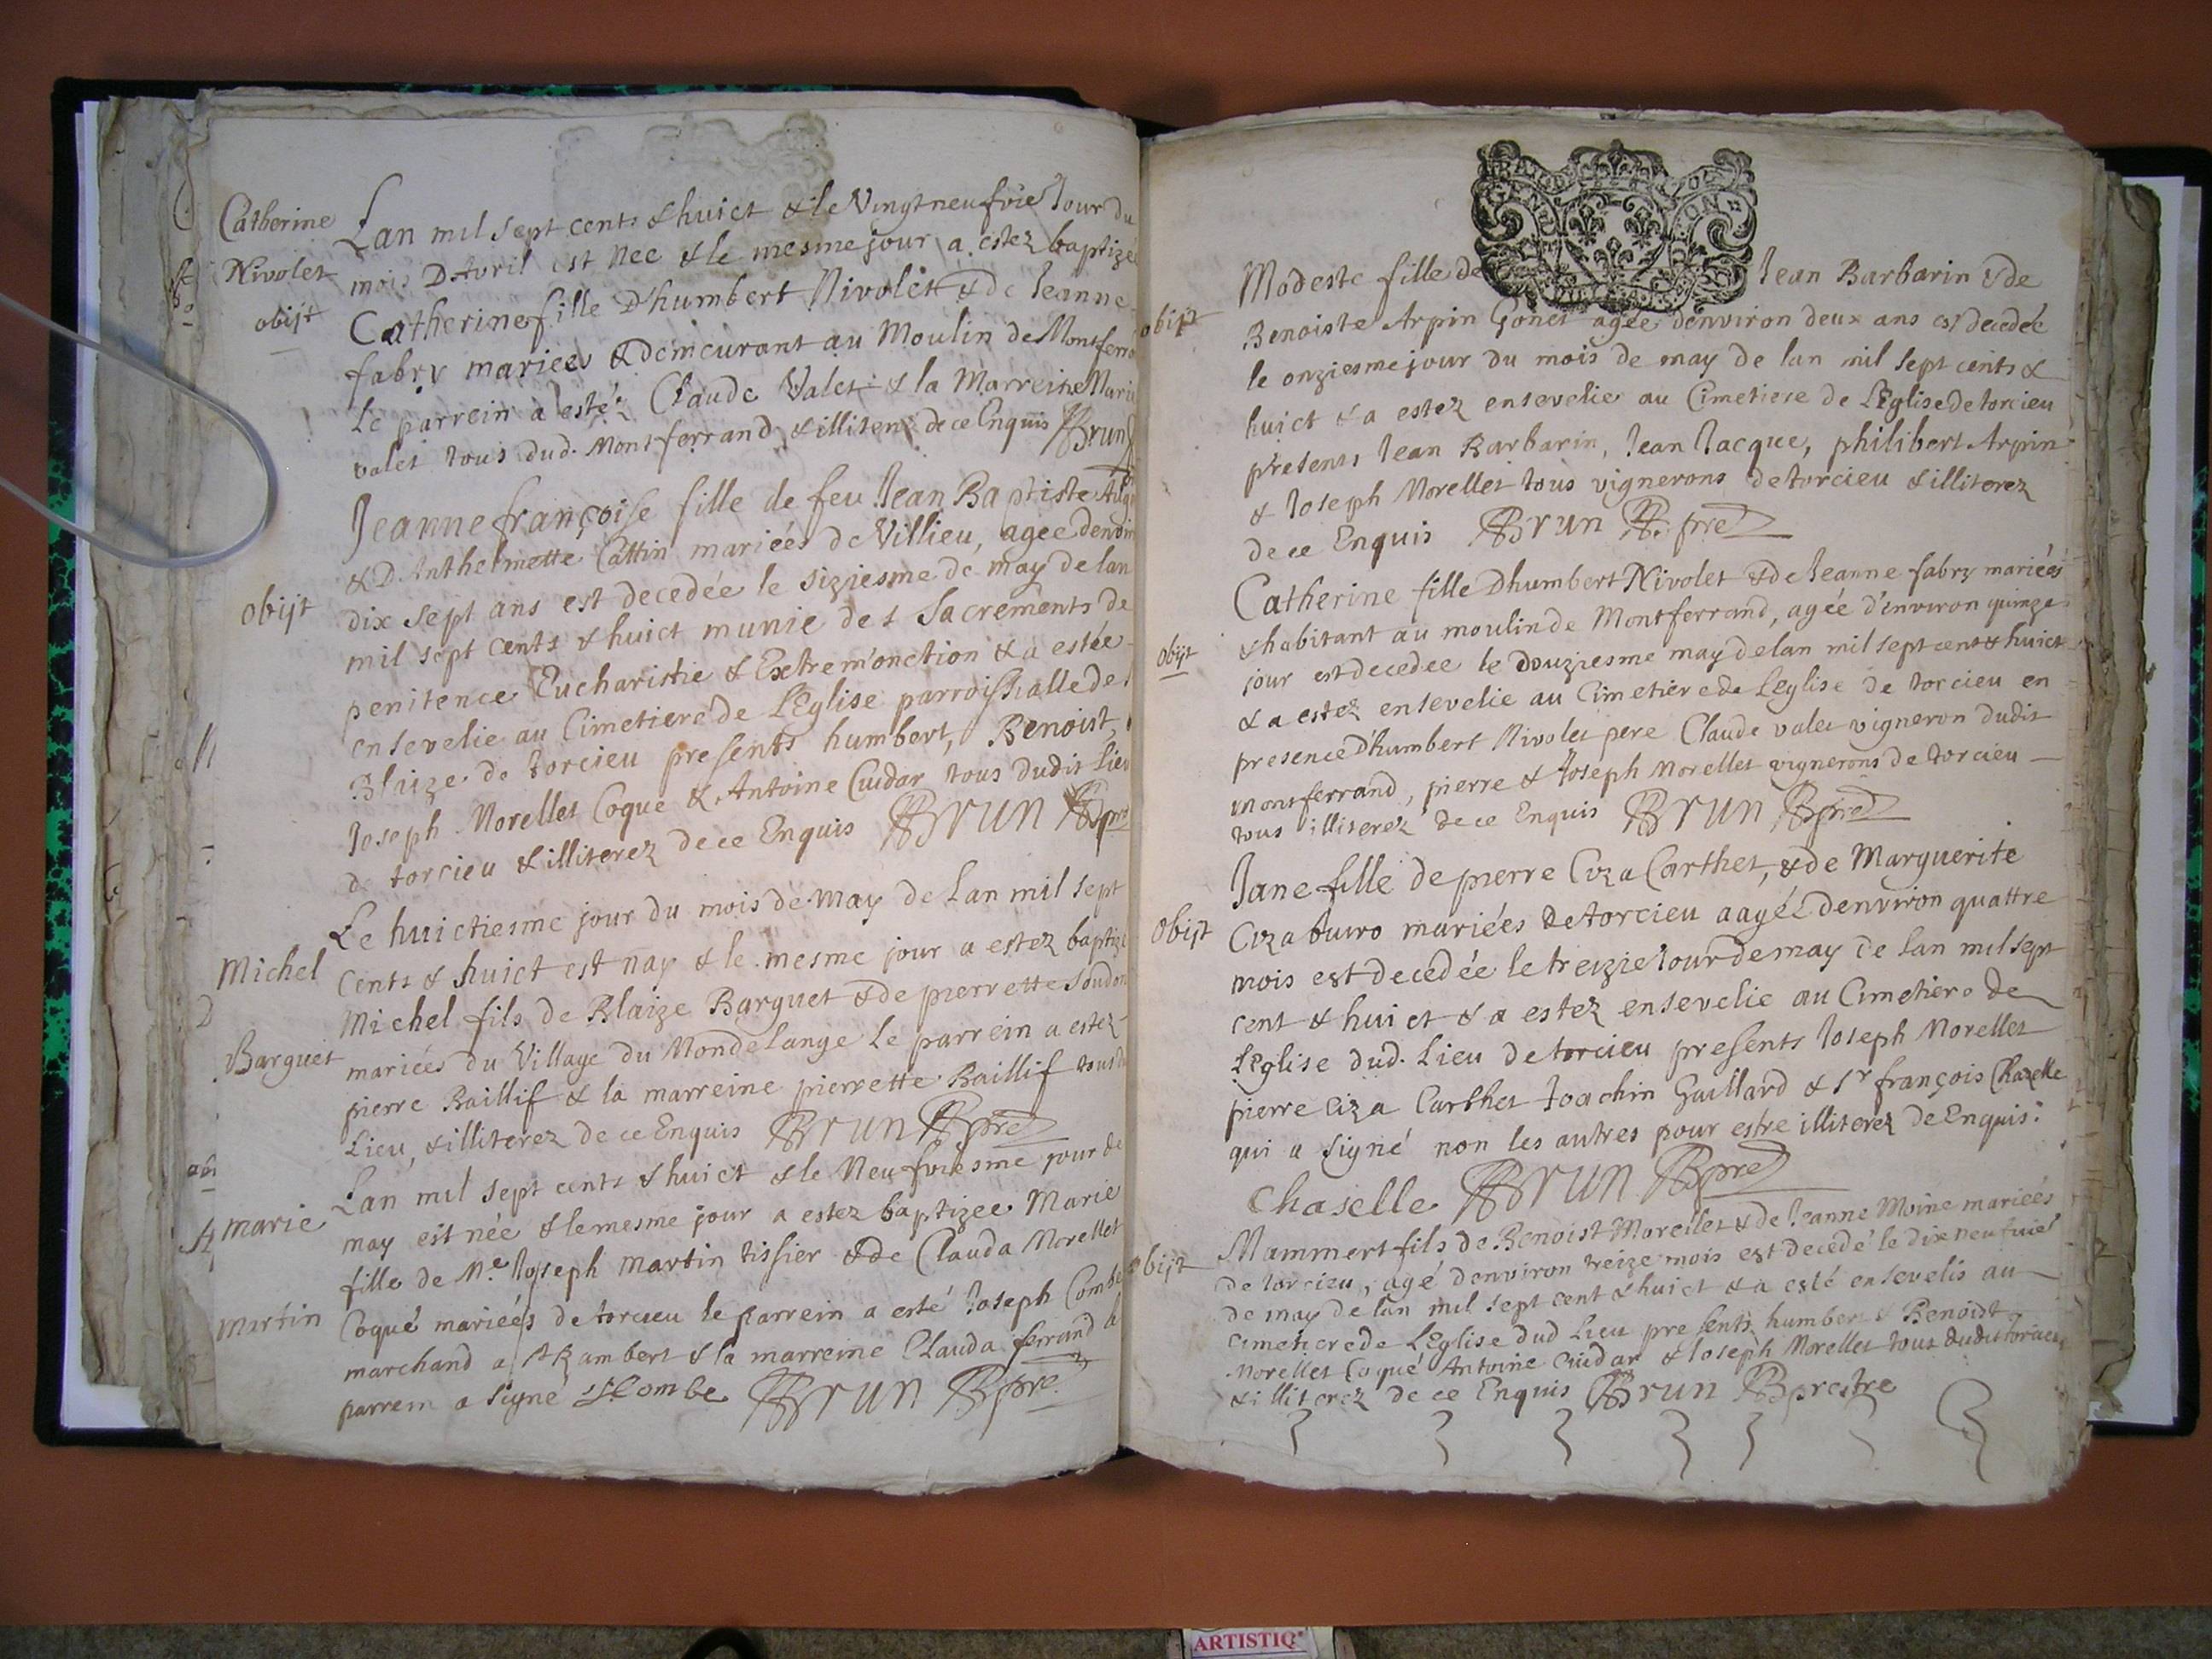 Catherine
Nivolet
obijt
Lan mil sept cents & huict & le Vingt neufvie Jour du
mois D'Avril est Nee & le mesme jour a estez baptizée
Catherine fille D'humbert Nivolet & de Jeanne
fabry mariees & demeurant au Moulin de Montferra
Le parrein a esté Claude Valet & la Marreine Marie
valet tous dud. Montferrand & illiterz de ce Enquis Brun
obijt
Jeanne françoise fille de feu Jean Baptiste
& D'Anthelmette Cattin mariées de Villieu, agee denviro
dix sept ans est decedée le siziesme de may de lan
mil sept cents & huict munie des Sacrements de
penitence Eucharistie & Extrem'onction & a estée
ensevelie au Cimetiere de LEglise parroissialle de
Blaize de torcieu presents humbert, Benoist,
Joseph Morellet Coque & Antoine Cuidar tous dudit lieu
de torcieu & illiterez de ce Enquis Brun pre
Michel
Barguet
Le huictiesme jour du mois de May de Lan mil sept
Cents & huict est nay & le mesme jour a estez baptizé
Michel fils de Blaize Barguet & de pierrette Soudon
mariées du Village du Mondelange Le parrein a estez
pierre Baillif & la marreine pierrette Baillif tous du
Lieu, & illiterez de ce Enquis Brun pre
marie
martin
Lan mil sept cents & huict & le Neufviesme jour de
may est née & le mesme jour a estez baptizee Marie
fille de Me. Joseph martin tissier & de Clauda Morellet
Coqué mariées de torcieu le parrein a esté Joseph Combe
marchand a St Rambert & la marreine Clauda ferrand le
parrein a signé Combe Brun pre.
obijt
Modeste fille de Jean Barbarin & de
Benoiste Arpin Gonet agée denviron deux ans est decedée
le onziesme jour du mois de may de lan mil sept cents &
huict & a estez ensevelie au Cimetiere de LEglise de torcieu
presents Jean Barbarin, Jean Jacque, philibert Arpin
& Joseph Morellet tous vignerons de torcieu & illiterez
de ce Enquis Brun pre
obijt
Catherine fille Dhumbert Nivolet & de Jeanne fabry mariées
& habitant au moulin de Montferrand, agée d'environ quinze
jour est decedee le douziesme may de lan mil sept cent & huict
& a estez ensevelie au Cimetiere de Leglise de torcieu en
presence Dhumbert Nivolet pere Claude valet vigneron dudit
montferrand, pierre & Joseph Morellet vignerons de torcieu
tous illiterez de ce Enquis Brun pre
obijt
Jane fille de pierre Ciza Carthet, & de Marguerite
Ciza buiro mariées de torcieu aagée denviron quattre
mois est decedée le treizie Jour de may de lan mil sept
cent & huict & a estez ensevelie au Cimetiere de
LEglise dud. Lieu de torcieu presents Joseph Morellet
pierre Ciza Carthet Joachin Gaillard & Sr françois Chaselle
qui a signé non les autres pour estre illiterez de Enquis.
Chaselle Brun pre
obijt
Mammert fils de Benoist Morellet & de Jeanne Moine mariées
de torcieu, agé denviron treize mois est decedé le dix neufvie
de may de lan mil sept cent & huict & a esté ensevelis au
cimetiere de LEglise dud Lieu presents humbert & Benoist
Morellet Coqué Antoine Cuidar & Joseph Morellet tous dudit torcieu
& illiterez de ce Enquis Brun prestre
ARTISTIQ